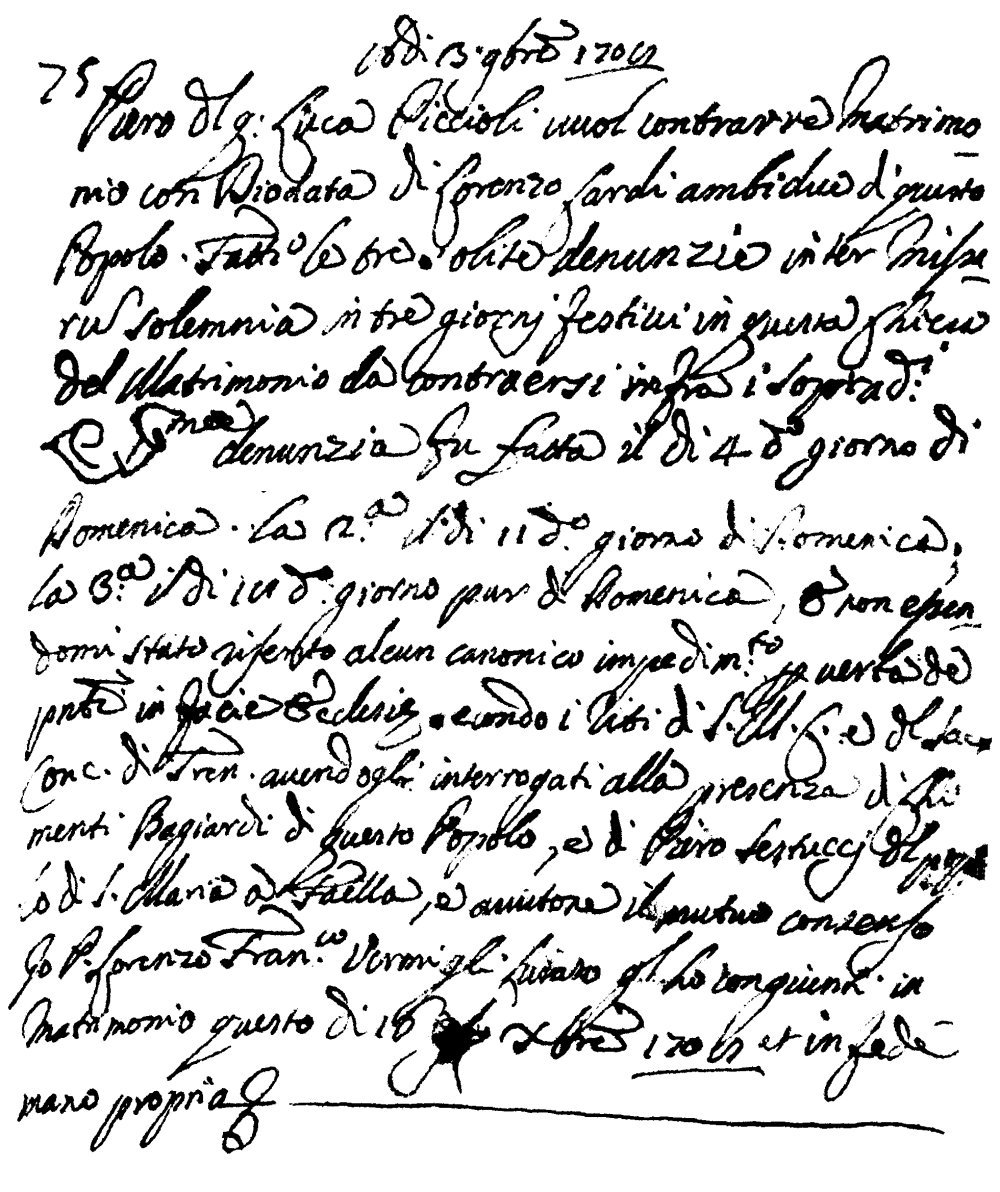 Adi 13 9bre 1702
75 Piero dl q: Luca Piccioli vuol contrarre Matrimo
nio con Diodata di Lorenzo Sardi ambidue di questo
Popolo. Fatte le tre solite denunzie inter Missa
rum solemnia in tre giorni festiui in questa Chiesa
del Matrimonio da contraersi infra i soprad.i
denunzia fu fatta il dì 4 do giorno di
Domenica. La 2.a il dì 11 do. giorno di Domenica,
la 3.a il dì do. giorno pur di Domenica, e non essen
domi stato riferito alcun canonico impedim.to p verba de
pnti in facie Ecclesie secondo i Riti di S. M. C. e del Sac
Conc. di Tren. auendogli interrogati alla presenza di Chi
menti Bagiardi di questo Popolo, e di Piero Sestucci del popo
lo di S. Maria a Faella, e auutone il mutuo consenso
Io P. Lorenzo Fran.co Vermigli Curato gl'ho congiunti in
Matrimonio questo dì 10 Xbre 1702 et in fede
mano propria